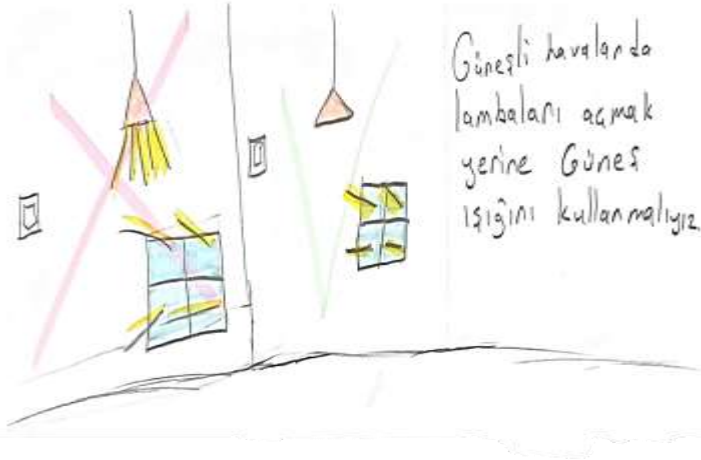 Güneşli havalarda
lambaları açmak
yerine Güneş
ışığını kullanmalıyız.